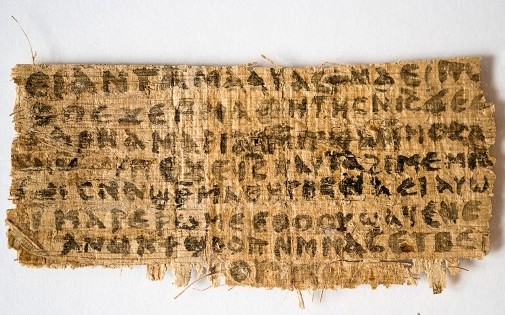 ⲉⲓ ⲁⲛ ⲧⲁⲙⲁⲁⲩ ⲁⲥϯⲛⲁⲉⲓ
ⲡⲉϫⲉ ⲙⲙⲁⲑⲏⲧⲏⲥ ⲛⲓⲥ ϫⲉ
ⲁⲣⲛⲁ ⲙⲁⲣⲓⲁⲙ
ⲡⲉϫⲉ ⲓⲥ ⲛⲁⲩ ⲧⲁϩⲓⲙⲉ ⲙⲛ
ⲥⲛⲁϣⲣⲙⲁⲑⲏⲧⲏⲥ ⲛⲁⲉⲓ ⲁⲩⲱ
ⲙⲁⲣⲉⲣⲱⲙⲉ ⲉⲑⲟⲟⲩ ϣⲁϥⲉ ⲛⲉ
ⲁⲛⲟⲕ ϯϣⲟⲟⲡ ⲛⲙⲙⲁⲥ ⲉⲧⲃⲉ